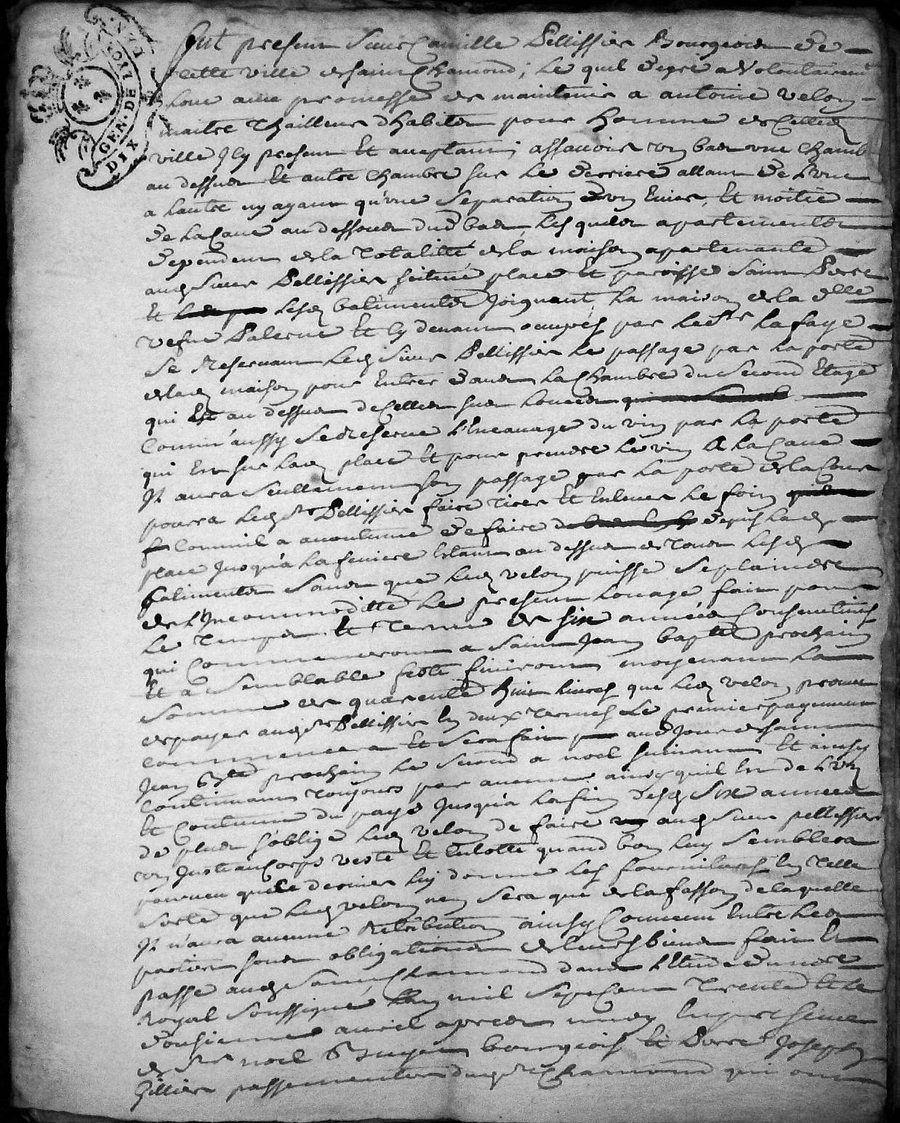 GEN. DE LYON
DIX
fut present Sieur Camille Pellissier Bourgeois de
cette ville de Saint Chamond, lequel de gré a volontairem
loué avec promesse de maintenir a antoine velon
maitre thailleur d'habits pour homme de cette
ville Jcy present et acceptant, assavoir un bas une chamb
au dessus et autre chambre sur le derriere allant de l'une
a l'autre ny ayant qu'une separation et moitié
de la Cave au dessous dud bas lesquels apartements
dependent de la totalité de la maison apartenante
aud Sieur Pellissier scituée place et paroisse Saint Pierre
et lesd batiments joignant la maison de la dlle
vefve Palerne et cy devant occupés par le sr Lafaye
se Reservant led Sieur Pellissier le passage par la porte
de lad maison pour entrer dans la chambre du second Etage
qui est au dessus de celles sus louées
comm'aussy se Reserve l'encavage du vin par la porte
qui est sur lad place et pour prendre le vin a la Cave
Jl aura seullement son passage par la porte de la Cour
pourra led sr Pellissier faire tirer et enlever le foin
comm'il a accoutumé de faire depuis lad
place jusqu'a la feniere estant au dessus de tous lesd
batiments sans que led velon puisse se plaindre
de l'Jncommoditté le present louage fait pour
le temps et terme de six années consecutives
qui commenceront a Saint Jean baptte prochain
et a semblable feste finiront moyenant la
somme de quarente huit livres que led velon promet
de payer aud sr Pellissier en deux termes le premier payement
commencera et sera fait au jour de Saint
Jean Bapte prochain le second a noel suivant et ainsy
continuant toujours par avance ainsy qu'il est de l'us
et coutume du pays jusqu'a la fin desd six années
de plus s'oblige led velon de faire aud sieur pellissier
un justeaucorps veste et culotte quand bon luy semblera
pourveu que ce dernier luy donne les fournitures en telle
sorte que led velon n'en sera que de la fasson de laquelle
Jl n'aura aucune Retribution ainsy Convenu Entre les
parties sous obligations de leurs biens fait et
passé aud Saint Chamond dans l'Etude du nore
Royal soussigné L'an mil sept cent trente et le
onsieme avril apres midy En presence
de sr noel bourgeois et Pierre Joseph
Gillier passementier dud st Chamond qui ont